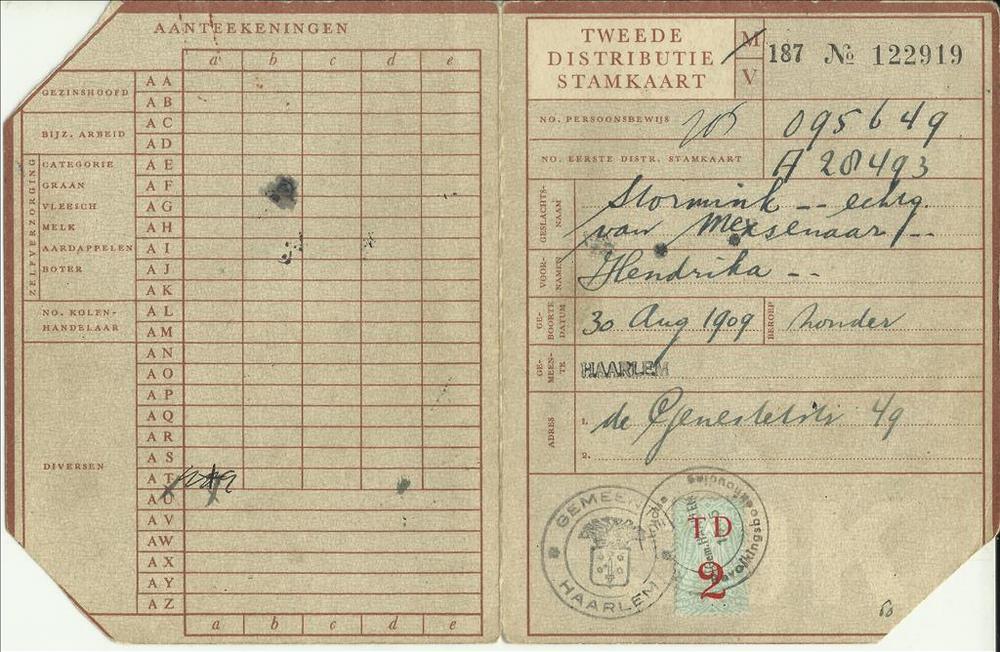 AANTEEKENINGEN
a b c d e
GEZINSHOOFD
A A
A B
BIJZ. ARBEID
A C
A D
ZELFVERZORGING
CATEGORIE
A E
GRAAN
A F
VLEESCH
A G
MELK
A H
AARDAPPELEN
A I
BOTER
A J
A K
NO. KOLEN-
HANDELAAR
A L
A M
A N
A O
A P
A Q
A R
A S
DIVERSEN
A T
A U
A V
A W
A X
A Y
A Z
a b c d e
TWEEDE
DISTRIBUTIE
STAMKAART
M
V
187 № 122919
NO. PERSOONSBEWIJS
095649
NO. EERSTE DISTR. STAMKAART
A 28493
GESLACHTS-
NAAM
Stormink -- echtg.
van Meijsenaar --
VOOR-
NAMEN
Hendrika --
GE-
BOORTE
DATUM
30 Aug 1909
BEROEP
zonder
GE-
MEEN-
TE
HAARLEM
ADRES
1. de Genestetstr 49
2.
GEMEENTE
HAARLEM
TD
2
Bevolkingsboekhouding